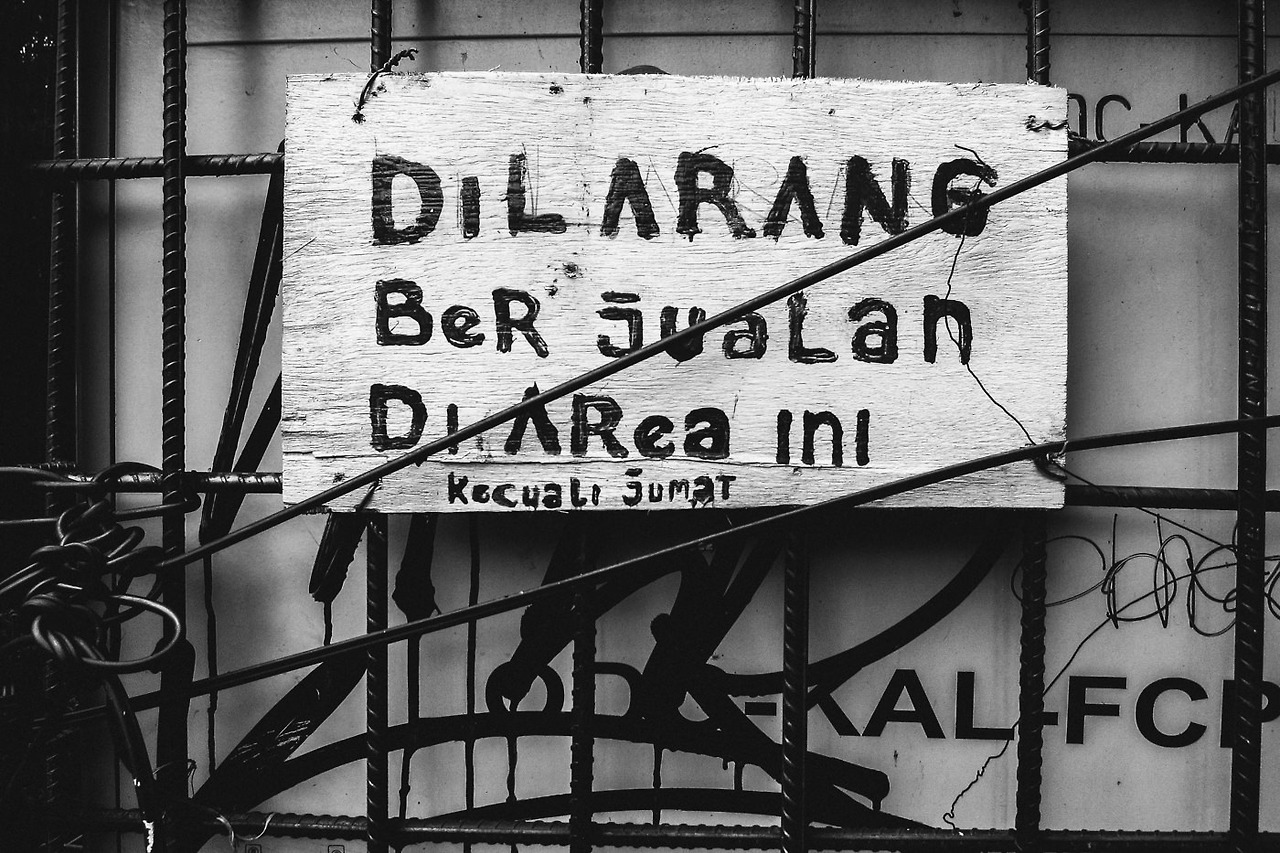 DiLARANG
BeR juaLan
Di ARea ini
Kecuali jumaT
ODC-KAL-FCP